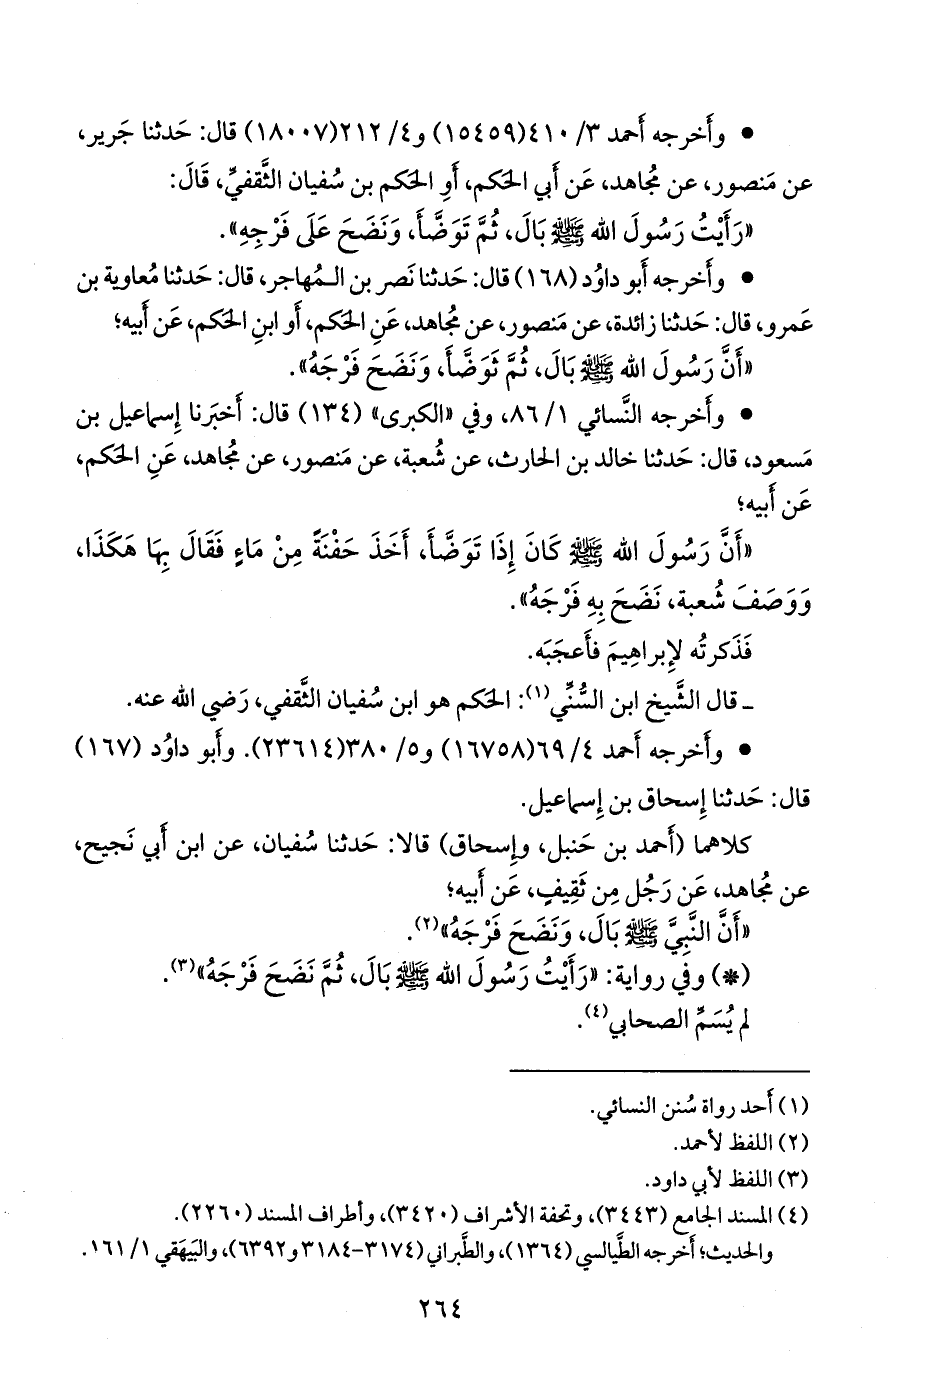 • وأَخرجه أَحمد ٣/ ٤١٠(١٥٤٥٩) و٤/ ٢١٢(١٨٠٠٧) قال: حَدثنا جَرير،
عن مَنصور، عن مُجاهد، عَن أَبي الحَكم، أَوِ الحَكم بن سُفيان الثَّقفيِّ، قَالَ:
«رَأَيْتُ رَسُولَ الله ﷺ بَالَ، ثُمَّ تَوَضَّأَ، وَنَضَحَ عَلَى فَرْجِهِ».
• وأَخرجه أَبو داوُد (١٦٨) قال: حَدثنا نَصر بن المُهاجر، قال: حَدثنا مُعاوية بن
عَمرو، قال: حَدثنا زائدة، عن مَنصور، عن مُجاهد، عَنِ الحَكم، أَو ابنِ الحَكم، عَن أَبيه؛
«أَنَّ رَسُولَ الله ﷺ بَالَ، ثُمَّ تَوَضَّأَ، وَنَضَحَ فَرْجَهُ».
• وأَخرجه النَّسائي ١/ ٨٦، وفي «الكبرى» (١٣٤) قال: أَخبَرنا إِسماعيل بن
مَسعود، قال: حَدثنا خالد بن الحارث، عن شُعبة، عن مَنصور، عن مُجاهد، عَنِ الحَكم،
عَن أَبيه؛
«أَنَّ رَسُولَ الله ﷺ كَانَ إِذَا تَوَضَّأَ، أَخَذَ حَفْنَةً مِنْ مَاءٍ فَقَالَ بِهَا هَكَذَا،
وَوَصَفَ شُعبة، نَضَحَ بِهِ فَرْجَهُ».
فَذَكرتُه لإِبراهِيمَ فأَعجَبَه.
ـ قال الشَّيخ ابن السُّنِّي(١): الحَكم هو ابن سُفيان الثَّقفي، رَضي الله عنه.
• وأَخرجه أَحمد ٤/ ٦٩(١٦٧٥٨) و٥/ ٣٨٠(٢٣٦١٤). وأَبو داوُد (١٦٧)
قال: حَدثنا إِسحاق بن إِسماعيل.
كلاهما (أَحمد بن حَنبل، وإِسحاق) قالا: حَدثنا سُفيان، عن ابن أَبي نَجيح،
عن مُجاهد، عَن رَجُل مِن ثَقِيفٍ، عَن أَبيه؛
«أَنَّ النَّبِيَّ ﷺ بَالَ، وَنَضَحَ فَرْجَهُ»(٢).
(*) وفي رواية: «رَأَيْتُ رَسُولَ الله ﷺ بَالَ، ثُمَّ نَضَحَ فَرْجَهُ»(٣).
لم يُسَمِّ الصحابي(٤).
(١) أَحد رواة سُنن النسائي.
(٢) اللفظ لأَحمد.
(٣) اللفظ لأَبي داود.
(٤) المسند الجامع (٣٤٤٣)، وتحفة الأَشراف (٣٤٢٠)، وأَطراف المسند (٢٢٦٠).
والحديث؛ أَخرجه الطَّيالسي (١٣٦٤)، والطَّبراني (٣١٧٤-٣١٨٤ و٦٣٩٢)، والبَيهَقي ١/ ١٦١.
٢٦٤